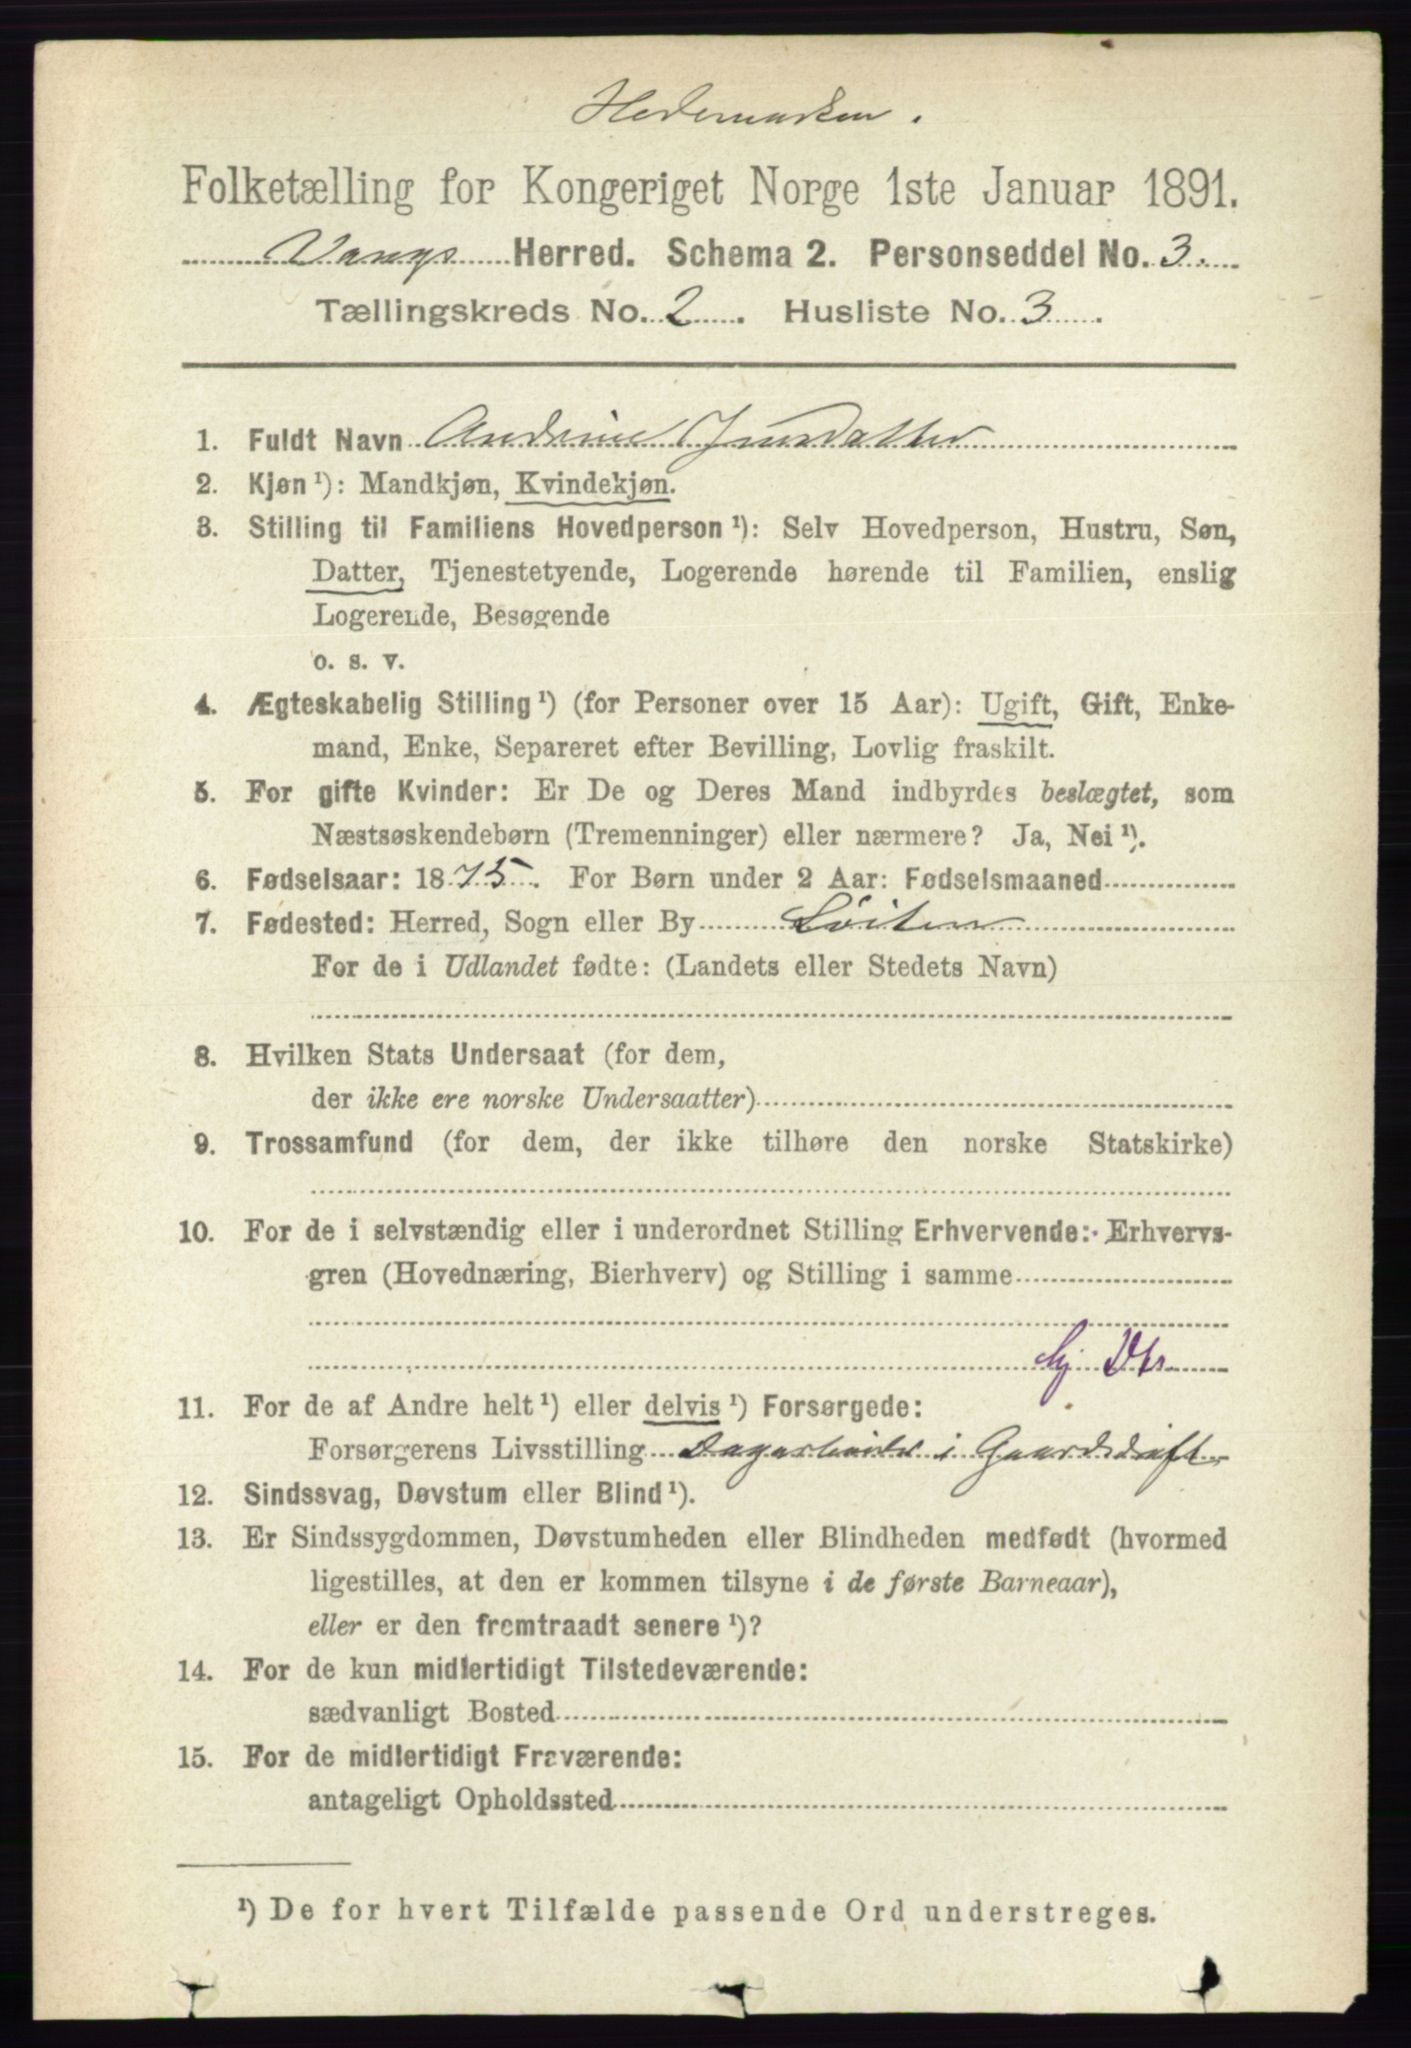 Hedemarken.
Folketælling for Kongeriget Norge 1ste Januar 1891.
Vangs Herred. Schema 2. Personseddel No. 3.
Tællingskreds No. 2. Husliste No. 3.
1. Fuldt Navn Andrine Jensdatter
2. Kjøn ¹): Mandkjøn, Kvindekjøn.
3. Stilling til Familiens Hovedperson ¹): Selv Hovedperson, Hustru, Søn,
Datter, Tjenestetyende, Logerende hørende til Familien, enslig
Logerende, Besøgende
o. s. v.
4. Ægteskabelig Stilling ¹) (for Personer over 15 Aar): Ugift, Gift, Enke-
mand, Enke, Separeret efter Bevilling, Lovlig fraskilt.
5. For gifte Kvinder: Er De og Deres Mand indbyrdes beslægtet, som
Næstsøskendebørn (Tremenninger) eller nærmere? Ja, Nei ¹).
6. Fødselsaar: 1875. For Børn under 2 Aar: Fødselsmaaned
7. Fødested: Herred, Sogn eller By Løiten
For de i Udlandet fødte: (Landets eller Stedets Navn)
8. Hvilken Stats Undersaat (for dem,
der ikke ere norske Undersaatter)
9. Trossamfund (for dem, der ikke tilhøre den norske Statskirke)
10. For de i selvstændig eller i underordnet Stilling Erhvervende: Erhvervs-
gren (Hovednæring, Bierhverv) og Stilling i samme
11. For de af Andre helt ¹) eller delvis ¹) Forsørgede:
Forsørgerens Livsstilling Dagarbeider i Gaardsdrift
12. Sindssvag, Døvstum eller Blind ¹).
13. Er Sindssygdommen, Døvstumheden eller Blindheden medfødt (hvormed
ligestilles, at den er kommen tilsyne i de første Barneaar),
eller er den fremtraadt senere ¹)?
14. For de kun midlertidigt Tilstedeværende:
sædvanligt Bosted
15. For de midlertidigt Fraværende:
antageligt Opholdssted
¹) De for hvert Tilfælde passende Ord understreges.